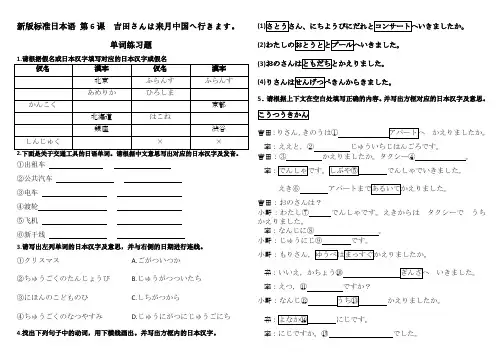 新版标准日本语 第6课 吉田さんは来月中国へ行きます。
单词练习题
1.请根据假名或日本汉字填写对应的日本汉字或假名
仮名 漢字 仮名 漢字
北京 ふらんす ふらんす
あめりか ひろしま
かんこく 京都
北海道 はこね
銀座 渋谷
しんじゅく × ×
2.下面是关于交通工具的日语单词。请根据中文意思写出对应的日本汉字及发音。
①出租车
②公共汽车
③电车
④渡轮
⑤飞机
⑥新干线
3.请写出左列单词的日本汉字及意思,并与右侧的日期进行连线。
①クリスマス A.ごがついつか
②ちゅうごくのたんじょうび B.じゅうがつついたち
③にほんのこどものひ C.しちがつから
④ちゅうごくのなつやすみ D.じゅうにがつにじゅうごにち
4.找出下列句子中的动词,用下横线画出。并写出方框内的日本汉字。
(1)さとうさん、にちようびにだれとコンサートへいきましたか。
(2)わたしのおとうととプールへいきました。
(3)おのさんはともだちとかえりました。
(4)りさんはせんげつペきんからきました。
5.请根据上下文在空白处填写正确的内容。并写出方框对应的日本汉字及意思。
こうつうきかん
吉田:りさん,きのうは① アパートへ かえりましたか。
李:ええと、② じゅういちじはんごろです。
吉田:③ かえりましたか。タクシー④ 。
李:でんしゃです。しぶや⑤ でんしゃでいきました。
えき⑥ アパートまであるいてかえりました。
吉田:おのさんは?
小野:わたし⑦ でんしゃです。えきからは タクシーで うち
かえりました。
李:なんじに⑧ 。
小野:じゅうじに⑨ です。
小野:もりさん,ゆうべはまっすぐかえりましたか。
森:いいえ,かちょう⑩ ぎんざへ いきました。
李:えつ,⑪ ですか?
小野:なんじに⑫ うち⑬ かえりましたか。
森:よなか⑭ にじです。
李:にじですか,⑮ でした。